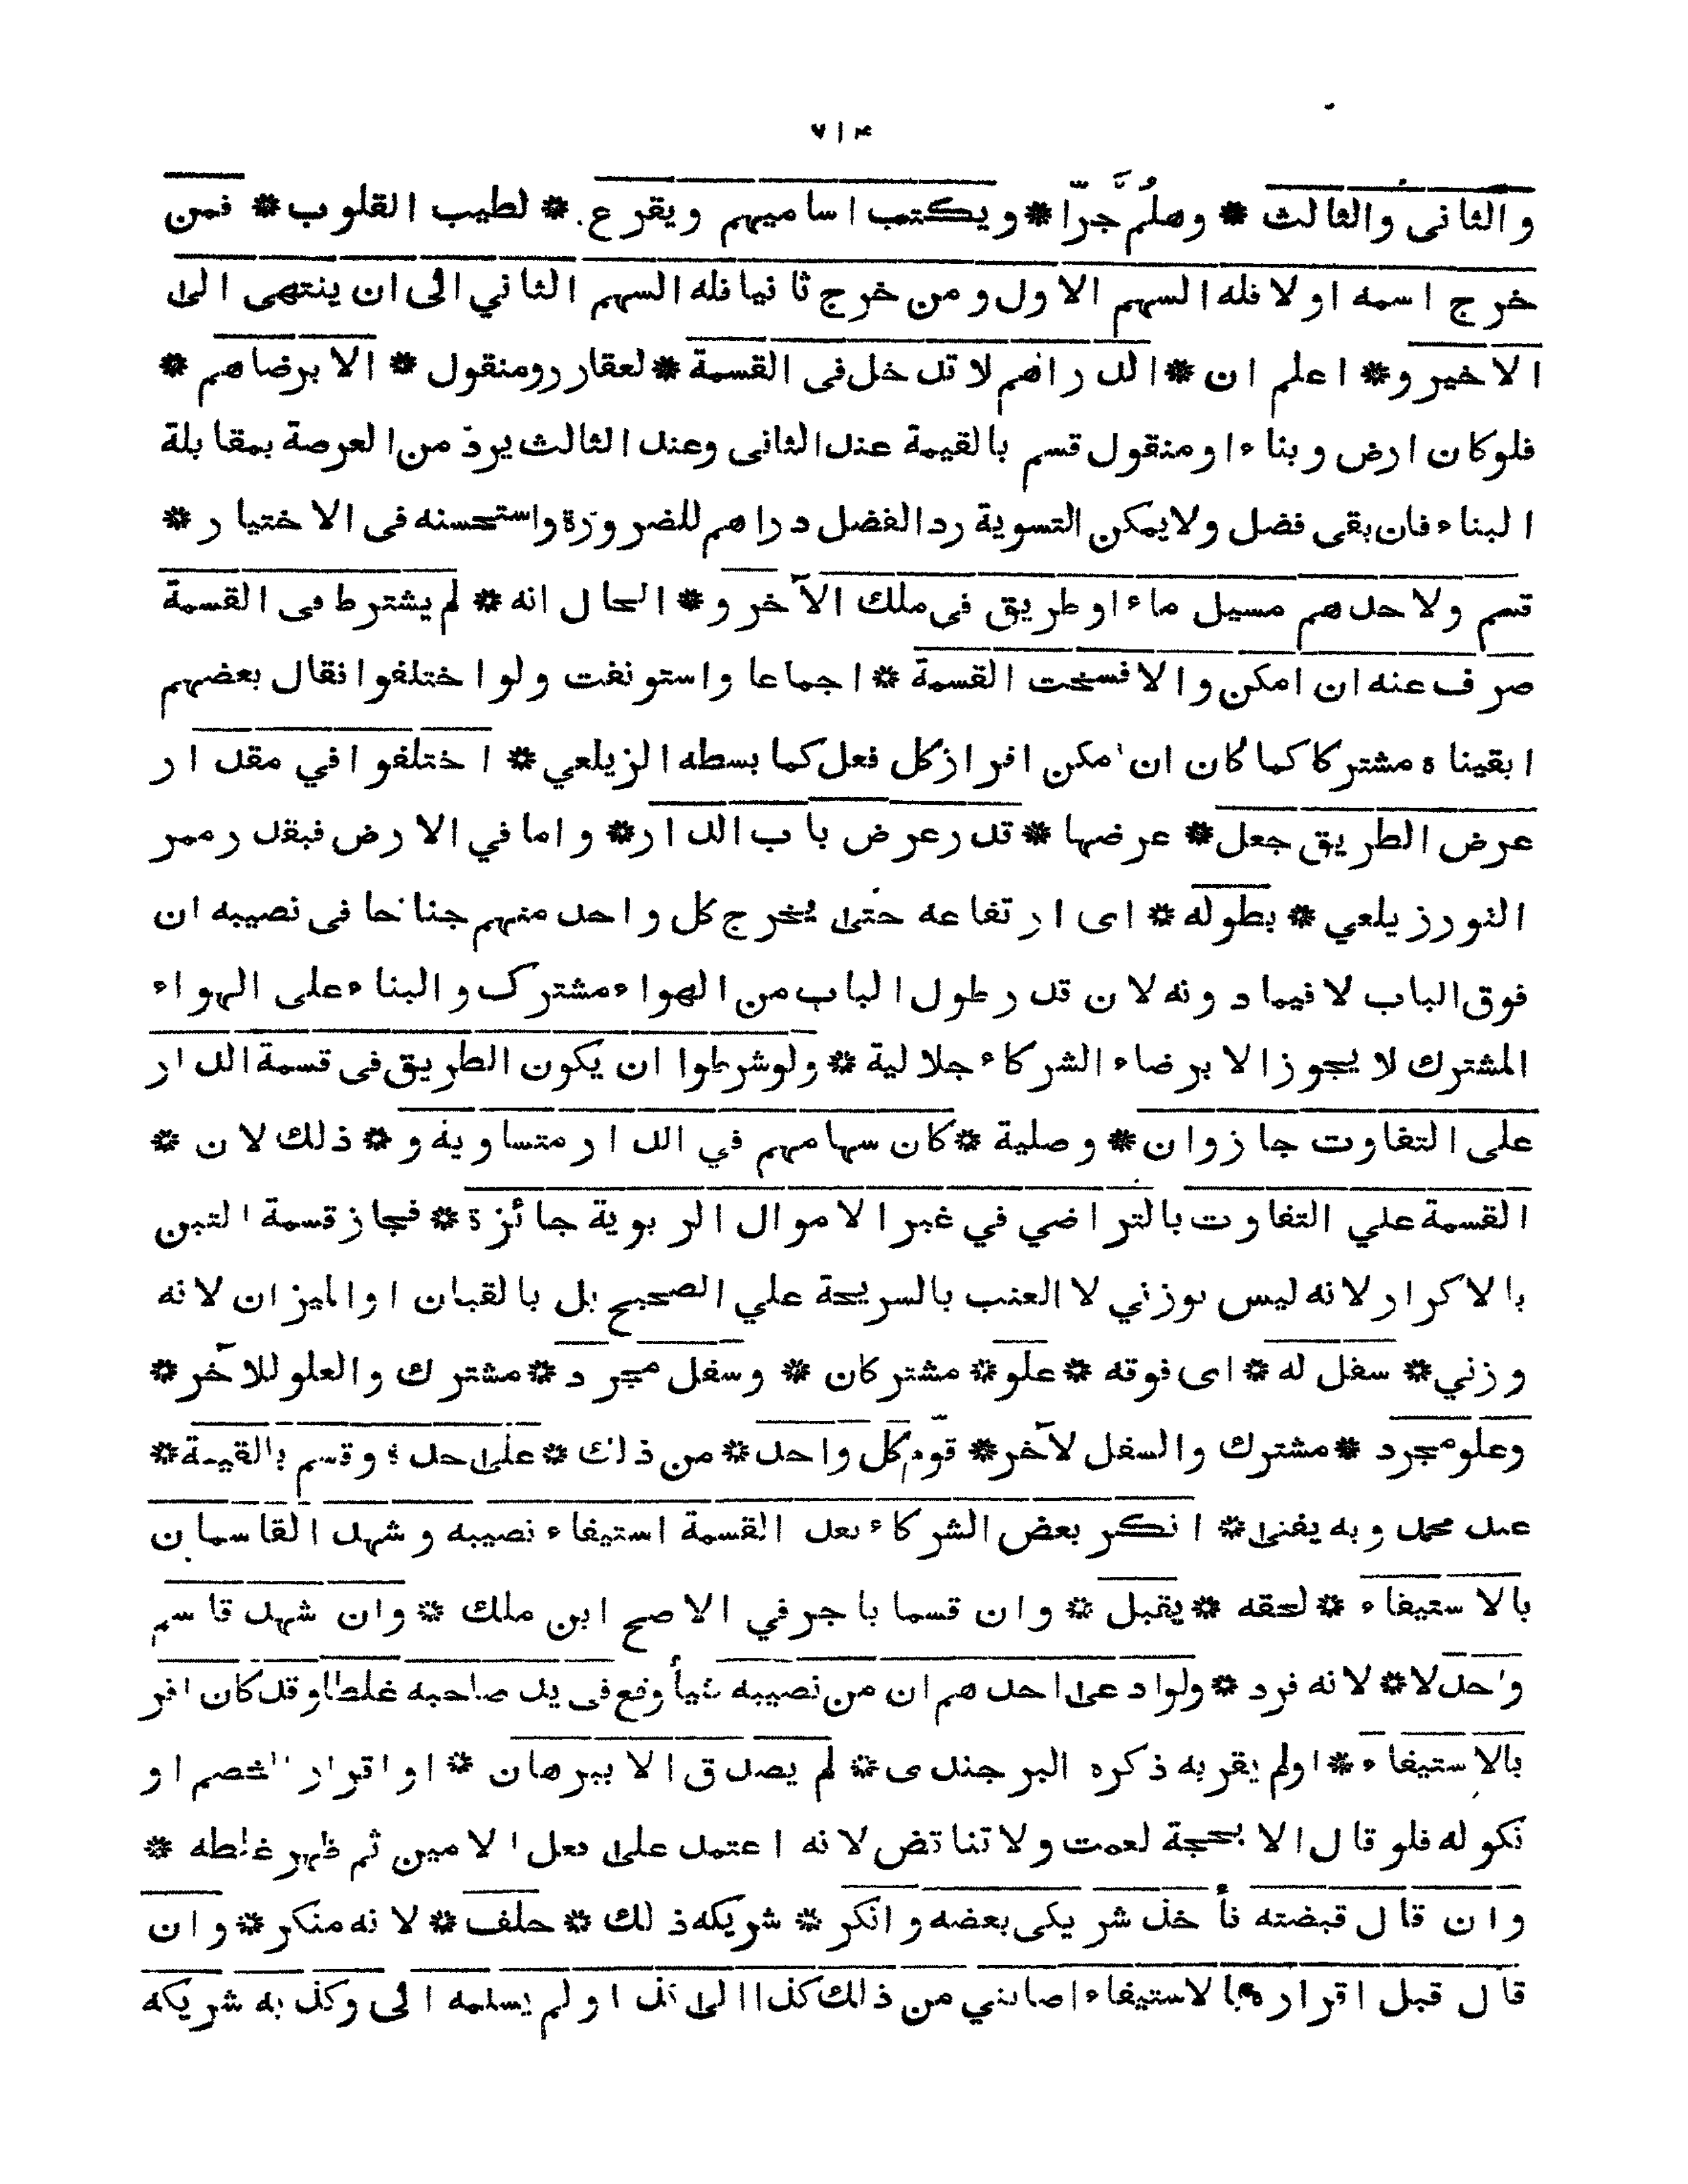 ٧١٤
والثانى والثالث * وهلُمَّ جرّا * ويكتب اساميهم ويقرع * لطيب القلوب * فمن
خرج اسمه اولا فله السهم الاول ومن خرج ثانيا فله السهم الثاني الى ان ينتهى الى
الاخير و * اعلم ان * الدراهم لا تدخل فى القسمة * لعقار رومنقول * الا برضاهم *
فلو كان ارض وبناء او منقول قسم بالقيمة عند الثانى وعند الثالث يرد من العرصة بمقابلة
البناء فان بقى فضل ولا يمكن التسوية رد الفضل دراهم للضرورة واستحسنه فى الاختيار *
قسم ولاحدهم مسيل ماء او طريق فى ملك الآخر و * الحال انه * لم يشترط فى القسمة
صرف عنه ان امكن والا فسخت القسمة * اجماعا واستونفت ولو اختلفوا نقال بعضهم
ابقيناه مشتركا كما كان ان امكن افراز كل فعل كما بسطه الزيلعي * اختلفوا في مقدار
عرض الطريق جعل * عرضها * قدر عرض باب الدار * واما في الارض فبقدر ممر
الثور زيلعي * بطوله * اى ارتفاعه حتى يخرج كل واحد منهم جناحا فى نصيبه ان
فوق الباب لا فيما دونه لان قدر طول الباب من الهواء مشترك والبناء على الهواء
المشترك لا يجوز الا برضاء الشركاء جلالية * ولو شرطوا ان يكون الطريق فى قسمة الدار
على التفاوت جاز وان * وصلية * كان سهامهم في الدار متساوية و * ذلك لان *
القسمة علي التفاوت بالتراضي في غير الاموال الربوية جائزة * فجاز قسمة التبن
بالاكرار لانه ليس بوزني لا العنب بالسريحة علي الصحيح بل بالقبان او الميزان لانه
وزني * سفل له * اى فوقه * علو * مشتركان * وسفل مجرد * مشترك والعلو للآخر *
وعلو مجرد * مشترك والسفل لآخر * قوم كل واحد * من ذلك * على حدة وقسم بالقيمة *
عند محمد وبه يفتى * انكر بعض الشركاء بعد القسمة استيفاء نصيبه وشهد القاسمان
بالاستيفاء * لحقه * يقبل * وان قسما باجر في الاصح ابن ملك * وان شهد قاسم
واحد لا * لانه فرد * ولو ادعى احدهم ان من نصيبه شيأ وقع فى يد صاحبه غلطا وقد كان اقر
بالاستيفاء * اولم يقر به ذكره البرجندى * لم يصدق الا ببرهان * او اقرار الخصم او
نكوله فلو قال الا بحجة لعمت ولا تناقض لانه اعتمد على فعل الامين ثم ظهر غلطه *
وان قال قبضته فأخذ شريكى بعضه وانكر * شريكه ذلك * حلف * لانه منكر * وان
قال قبل اقراره بالاستيفاء اصابني من ذلك كذا الى كذا ولم يسلمه الى وكذبه شريكه